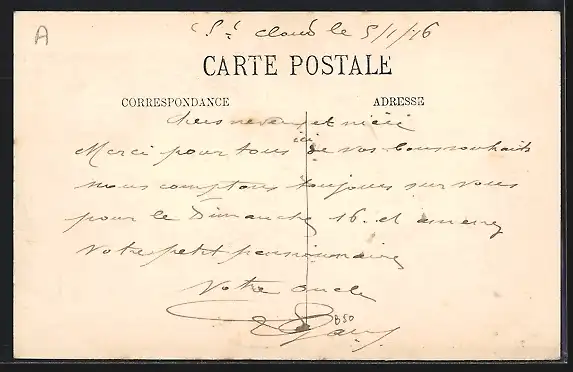 A
St Cloud le 5/1/16
CARTE POSTALE
CORRESPONDANCE
ADRESSE
Chers neveu et nièce
Merci pour tous de vos bons souhaits
nous comptons toujours sur vous
pour le Dimanche 16. et amenez
votre petit pensionnaire
Votre oncle
B50